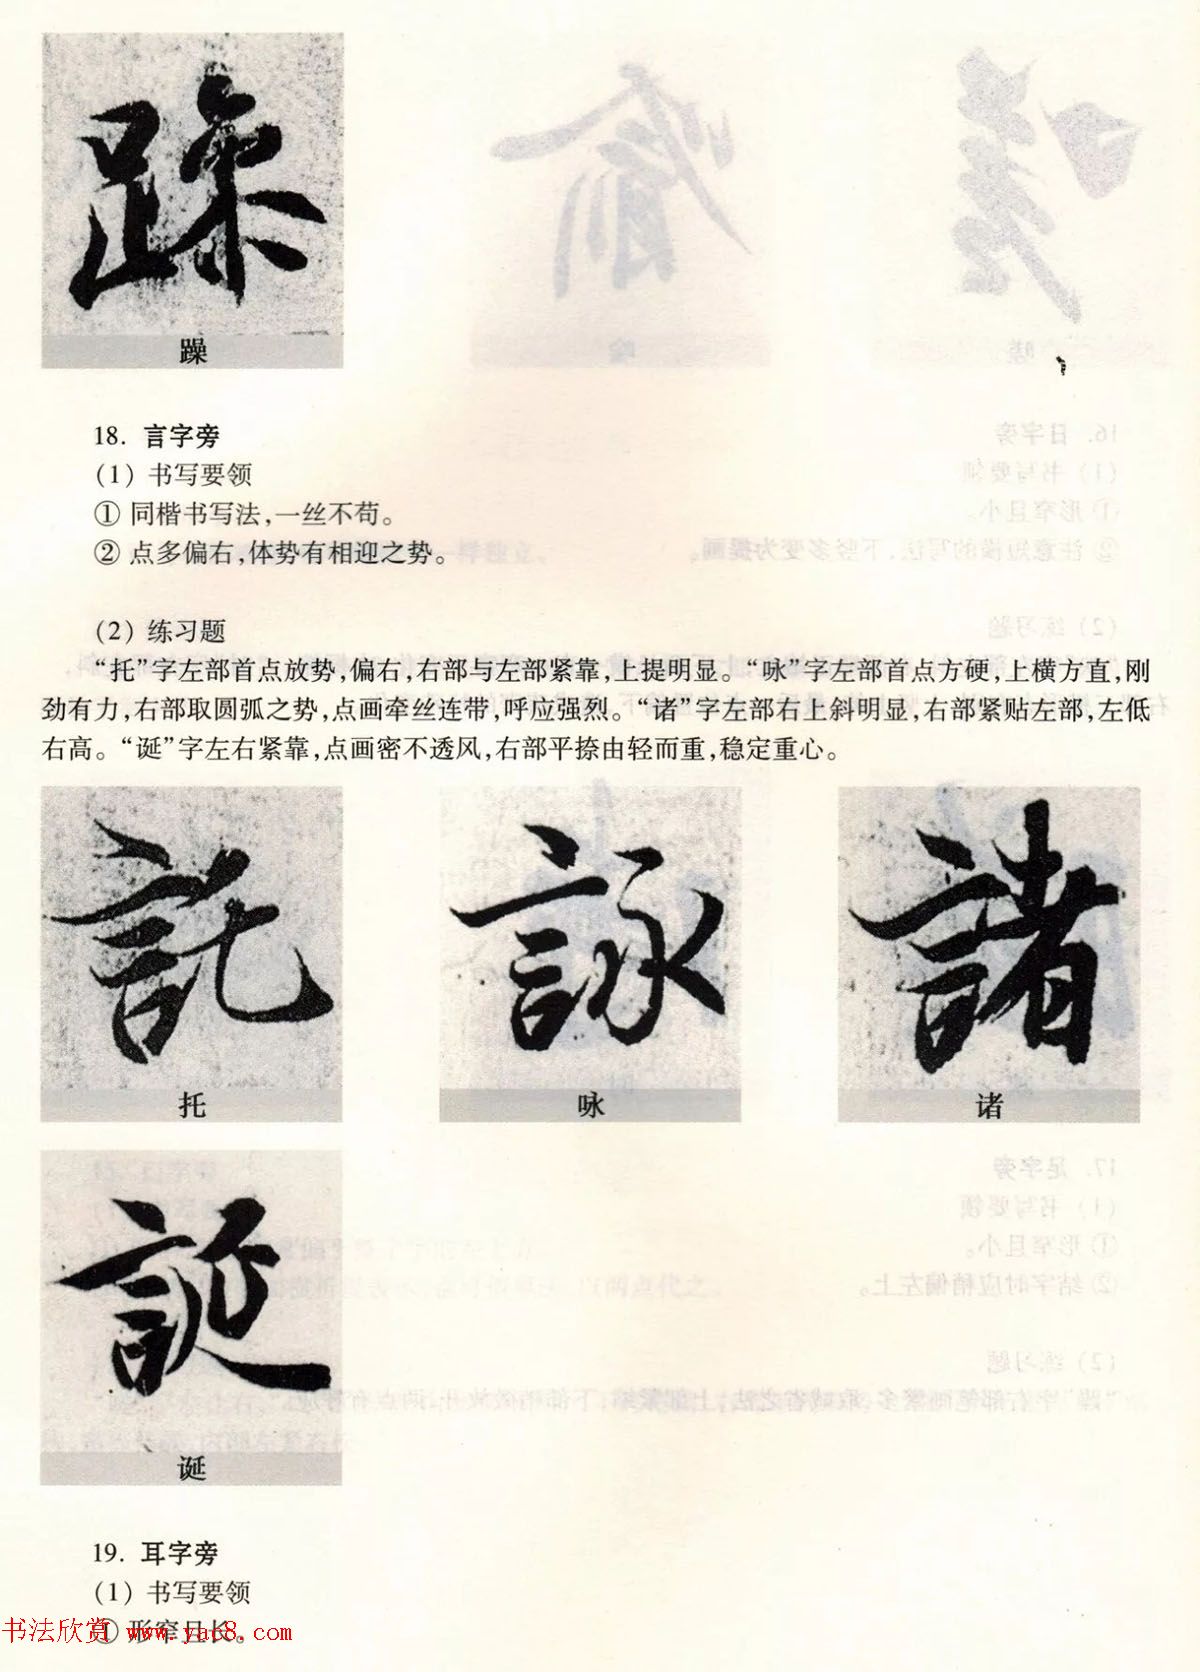 躁
18. 言字旁
(1) 书写要领
① 同楷书写法,一丝不苟。
② 点多偏右,体势有相迎之势。
(2) 练习题
“托”字左部首点放势,偏右,右部与左部紧靠,上提明显。“咏”字左部首点方硬,上横方直,刚
劲有力,右部取圆弧之势,点画牵丝连带,呼应强烈。“诸”字左部右上斜明显,右部紧贴左部,左低
右高。“诞”字左右紧靠,点画密不透风,右部平捺由轻而重,稳定重心。
託 詠 諸
托 咏 诸
誕
诞
19. 耳字旁
(1) 书写要领
① 形窄且长。
书法欣赏 www.yac8.com